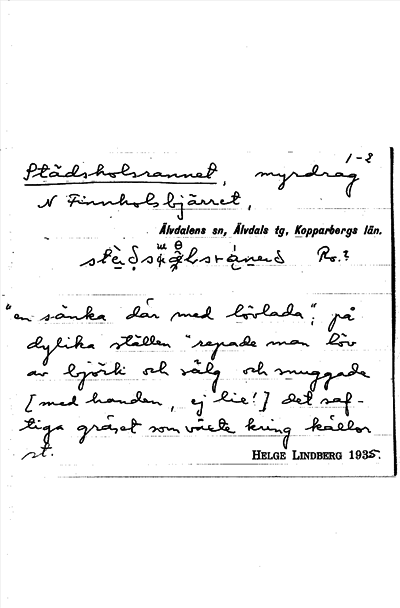 1-2
Städsholsrannet, myrdrag
N Finnholsbjärret,
Älvdalens sn, Älvdals tg, Kopparbergs län.
Ro. 2
"en sänka där med lövlada"; på
dylika ställen "repade man löv
av björk och sälg och snuggade
[med handen, ej lie!] det saf-
tiga gräset som växte kring källor
st.
HELGE LINDBERG 1935.